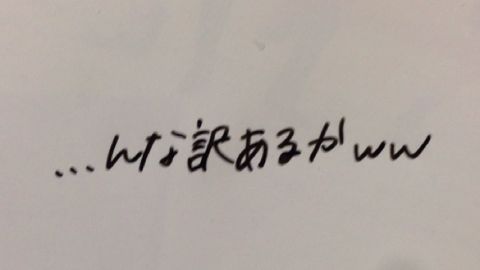 ...んな訳あるかww